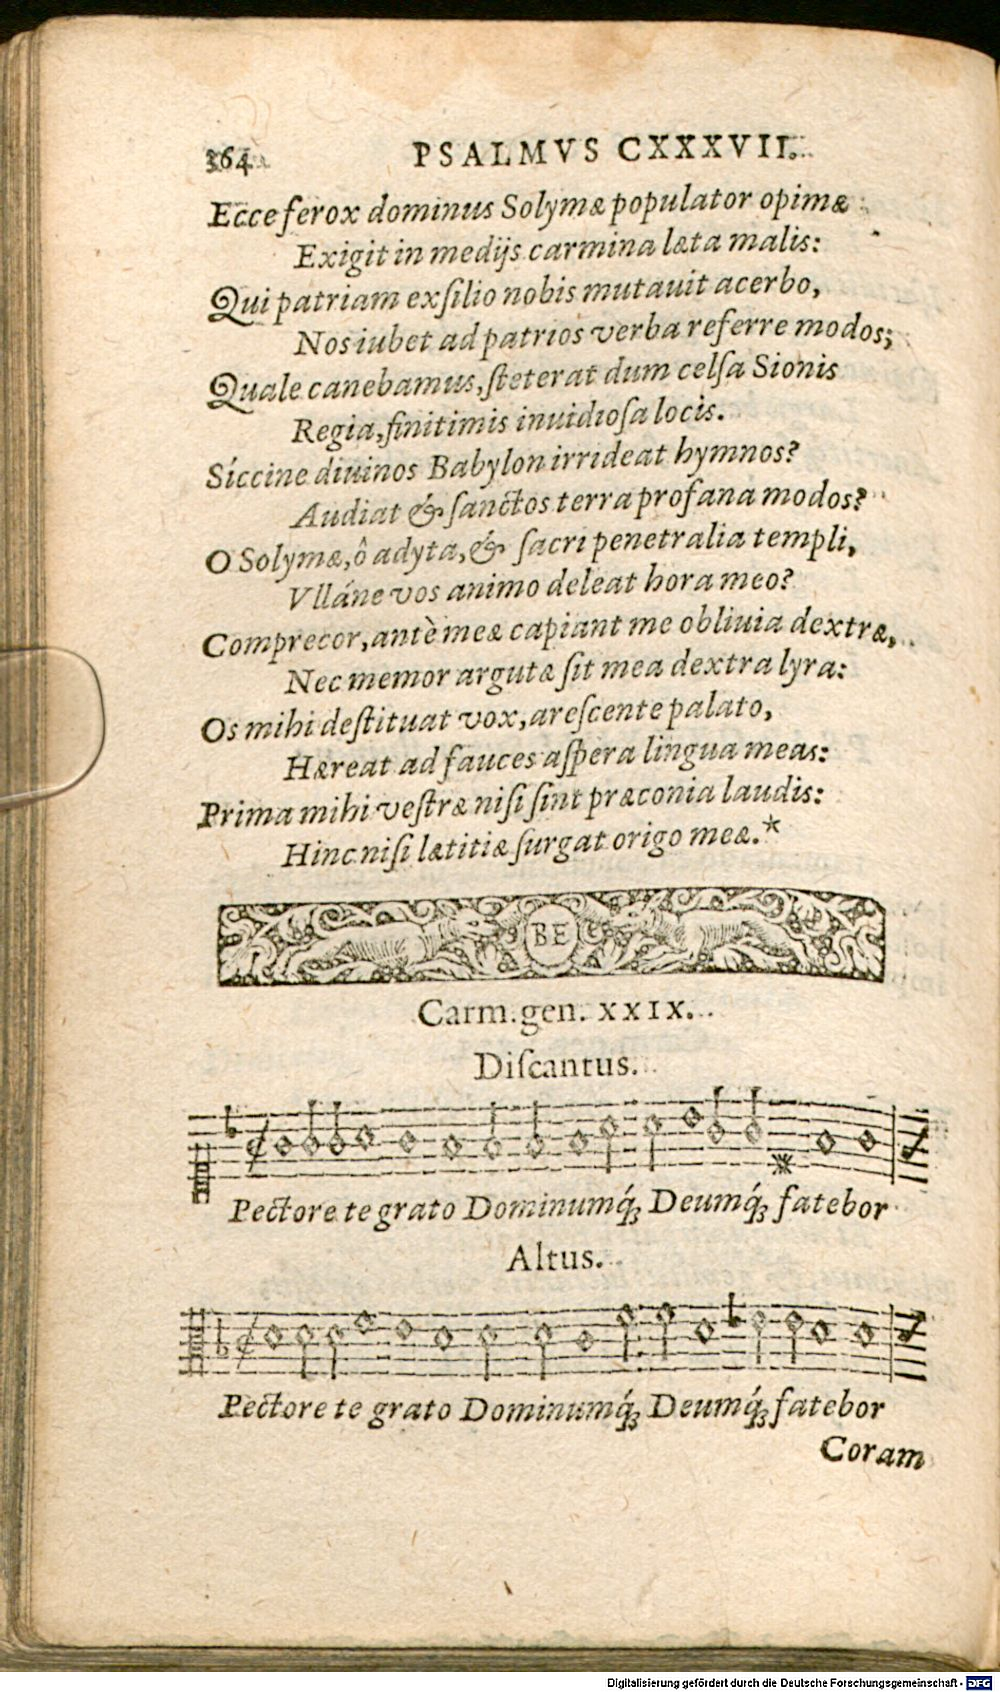 364
PSALMVS CXXXVII.
Ecce ferox dominus Solymæ populator opimæ
Exigit in medijs carmina læta malis:
Qui patriam exſilio nobis mutauit acerbo,
Nos iubet ad patrios verba referre modos;
Quale canebamus, ſteterat dum celſa Sionis
Regia, finitimis inuidioſa locis.
Síccine diuinos Babylon irrideat hymnos?
Audiat & ſanctos terra profana modos?
O Solymæ, ô adyta, & ſacri penetralia templi,
Vlláne vos animo deleat hora meo?
Comprecor, antè meæ capiant me obliuia dextræ,
Nec memor argutæ ſit mea dextra lyræ:
Os mihi deſtituat vox, areſcente palato,
Hæreat ad fauces aſpera lingua meas:
Prima mihi veſtræ niſi ſint præconia laudis:
Hinc niſi lætitiæ ſurgat origo meæ.*
BE
Carm. gen. XXIX.
Diſcantus.
Pectore te grato Dominumq́; Deumq́; fatebor
Altus.
Pectore te grato Dominumq́; Deumq́; fatebor
Coram
Digitalisierung gefördert durch die Deutsche Forschungsgemeinschaft - DFG